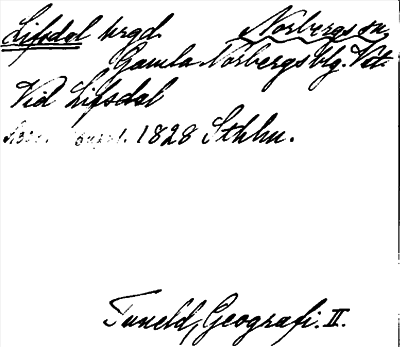 Lifsdal hrgd. Norbergs sn.
Gamla Norbergs blg. Vtl.
Vid Lifsdal
1828 Sthlm.
Tuneld, Geografi. II.